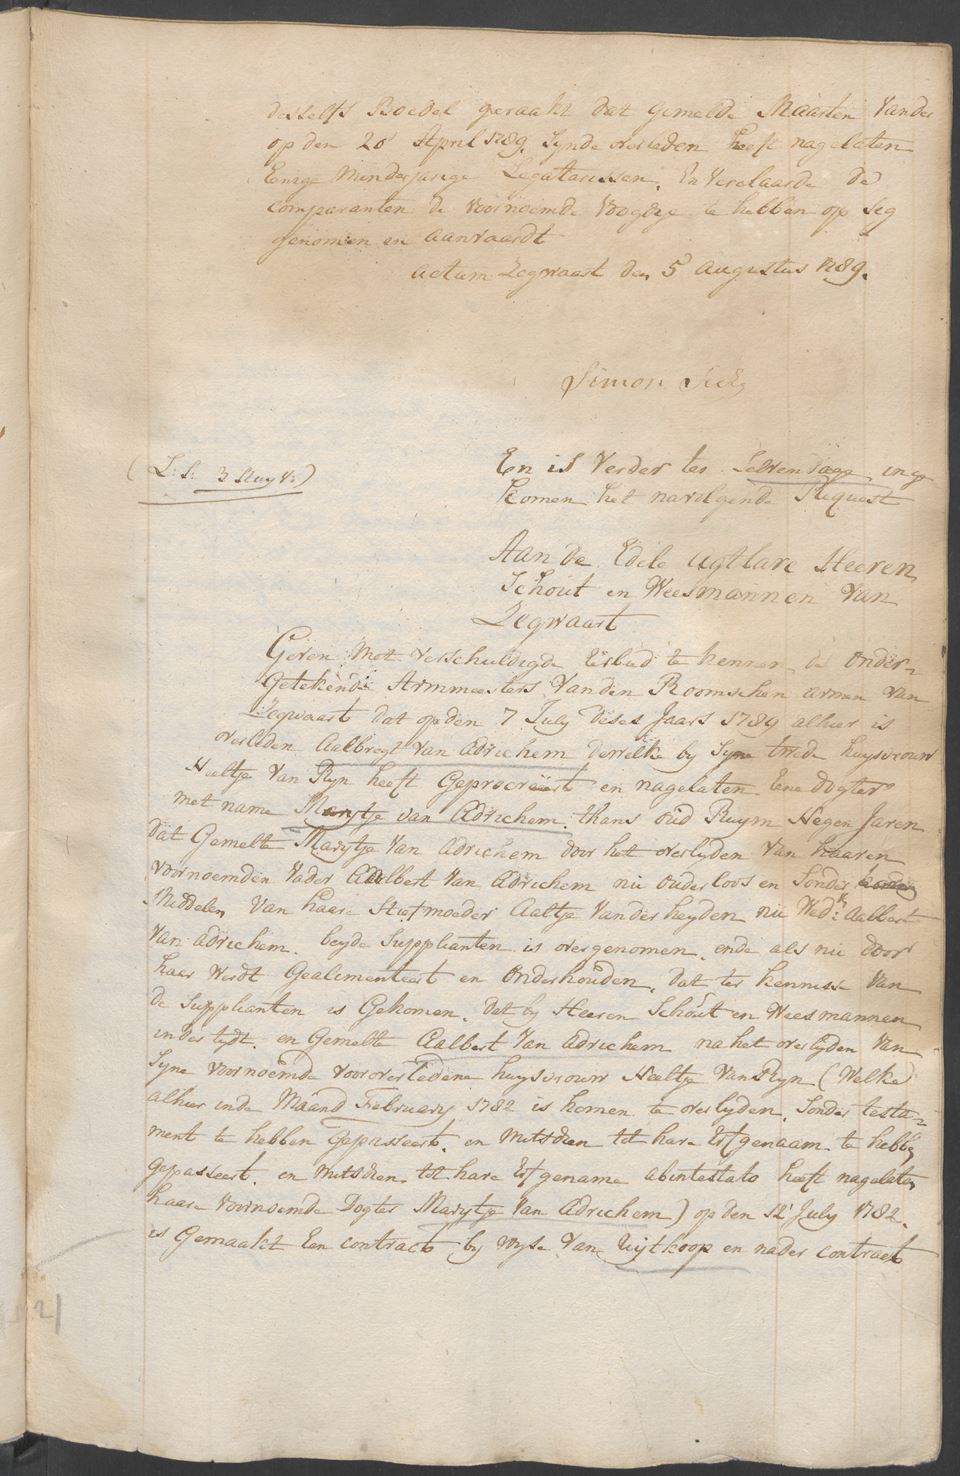 desselfs Boedel geraakt dat gemelde Maarten Vander
op den 20 April 1789. Synde overleden heeft nagelaten
Eenige Minderjarige Legatarissen. En Verclaarde de
comparanten de voornoemde voogdye te hebben op seg
genomen en aanvaardt
actum Zegwaart den 5 augustus 1789.
Simon
(L: S: 3 Stuyv:)
En is Verder ten Selven dage inge
komen het navolgende Request
Aan de Edele agtbare Heeren
Schout en Weesmannen van
Zegwaart
Geven Met verschuldigde Eerbied te kennen de onder-
getekende Armmeesters Vanden Roomschen armen van
Zegwaart dat op den 7 July deses Jaars 1789 alhier is
overleden Aalbregt van Adrichem dewelke by Syne twede huysvrouw
Neeltje Van Ryn heeft Geprocreëert en nagelaten Ene dogter
met name Marytje van Adrichem. thans oud Ruym Negen Jaren
dat Gemelte Marytje Van Adrichem door het overlyden Van haaren
voornoemden Vader Aalbert Van Adrichem nu ouderloos en Sonder
Middelen Van haare Stiefmoeder Aaltje Vander heyden nu Wed: Aalbert
Van Adrichem. beyde Supplianten is overgenomen. ende als nu door
haer werdt Gealimenteert en Onderhouden. Dat ter kennisse Van
de Supplianten is Gekomen. Dat by Heeren Schout en Weesmannen
inder tydt. en Gemelte Aalbert Van Adrichem na het overlyden Van
Syne voornoemde vooroverledene huysvrouw Neeltje Van Ryn (Welke
alhier inde Maand February 1782 is komen te overlyden. Sonder testa-
ment te hebben Gepasseert. en mitsdien tot hare Erfgenaam te hebbe
gepasseert. en mitsdien tot hare Erfgename abintestato heeft nagelaten
haare voornoemde Dogter Marytje Van Adrichem) op den 12 July 1782.
is Gemaakt Een contract by wyse Van Uytkoop en nader contract